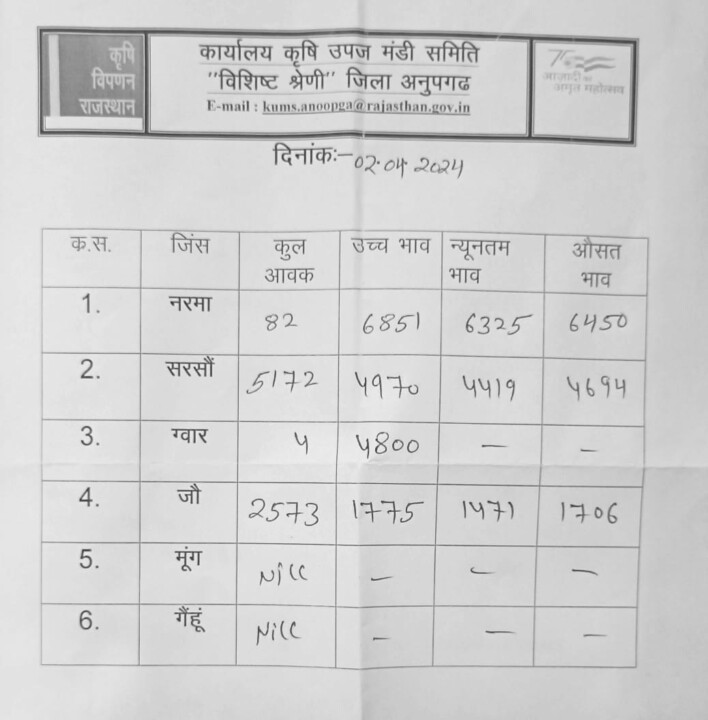 कृषि
विपणन
राजस्थान
कार्यालय कृषि उपज मंडी समिति
"विशिष्ट श्रेणी" जिला अनुपगढ
E-mail : kums.anoopga@rajasthan.gov.in
75
आज़ादी का
अमृत महोत्सव
दिनांकः–02.04.2024
क.स. जिंस कुल आवक उच्च भाव न्यूनतम भाव औसत भाव
1. नरमा 82 6851 6325 6450
2. सरसौं 5172 4970 4419 4694
3. ग्वार 4 4800 — —
4. जौ 2573 1775 1471 1706
5. मूंग Nill — — —
6. गैंहूं Nill — — —